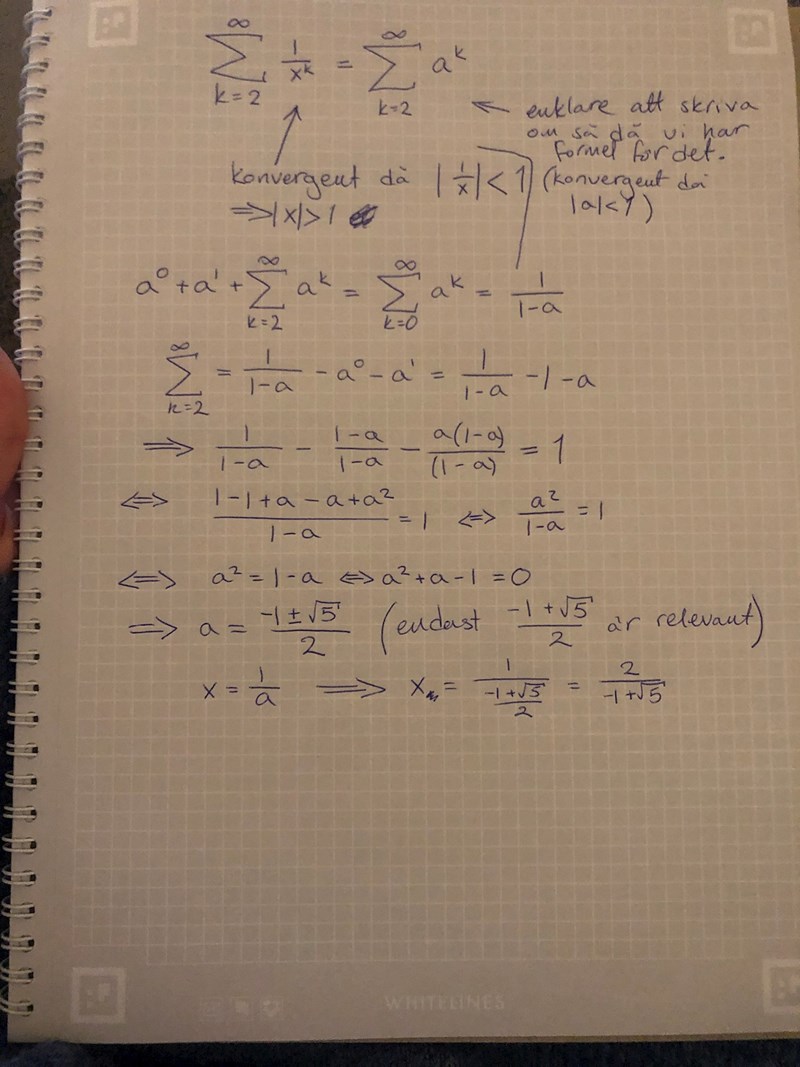 ∞ ∑ k=2 1/x^k = ∞ ∑ k=2 a^k
← enklare att skriva
om så då vi har
formel för det.
(konvergent då
|a|<1)
konvergent då |1/x| < 1
⇒ |x| > 1
a^0 + a^1 + ∞ ∑ k=2 a^k = ∞ ∑ k=0 a^k = 1/(1-a)
∞ ∑ k=2 = 1/(1-a) - a^0 - a^1 = 1/(1-a) - 1 - a
⇒ 1/(1-a) - (1-a)/(1-a) - a(1-a)/(1-a) = 1
⇔ (1-1+a-a+a^2)/(1-a) = 1 ⇔ a^2/(1-a) = 1
⇔ a^2 = 1-a ⇔ a^2+a-1 = 0
⇒ a = (-1±√5)/2 (endast (-1+√5)/2 är relevant)
x = 1/a ⇒ x = 1/((-1+√5)/2) = 2/(-1+√5)
WHITELINES